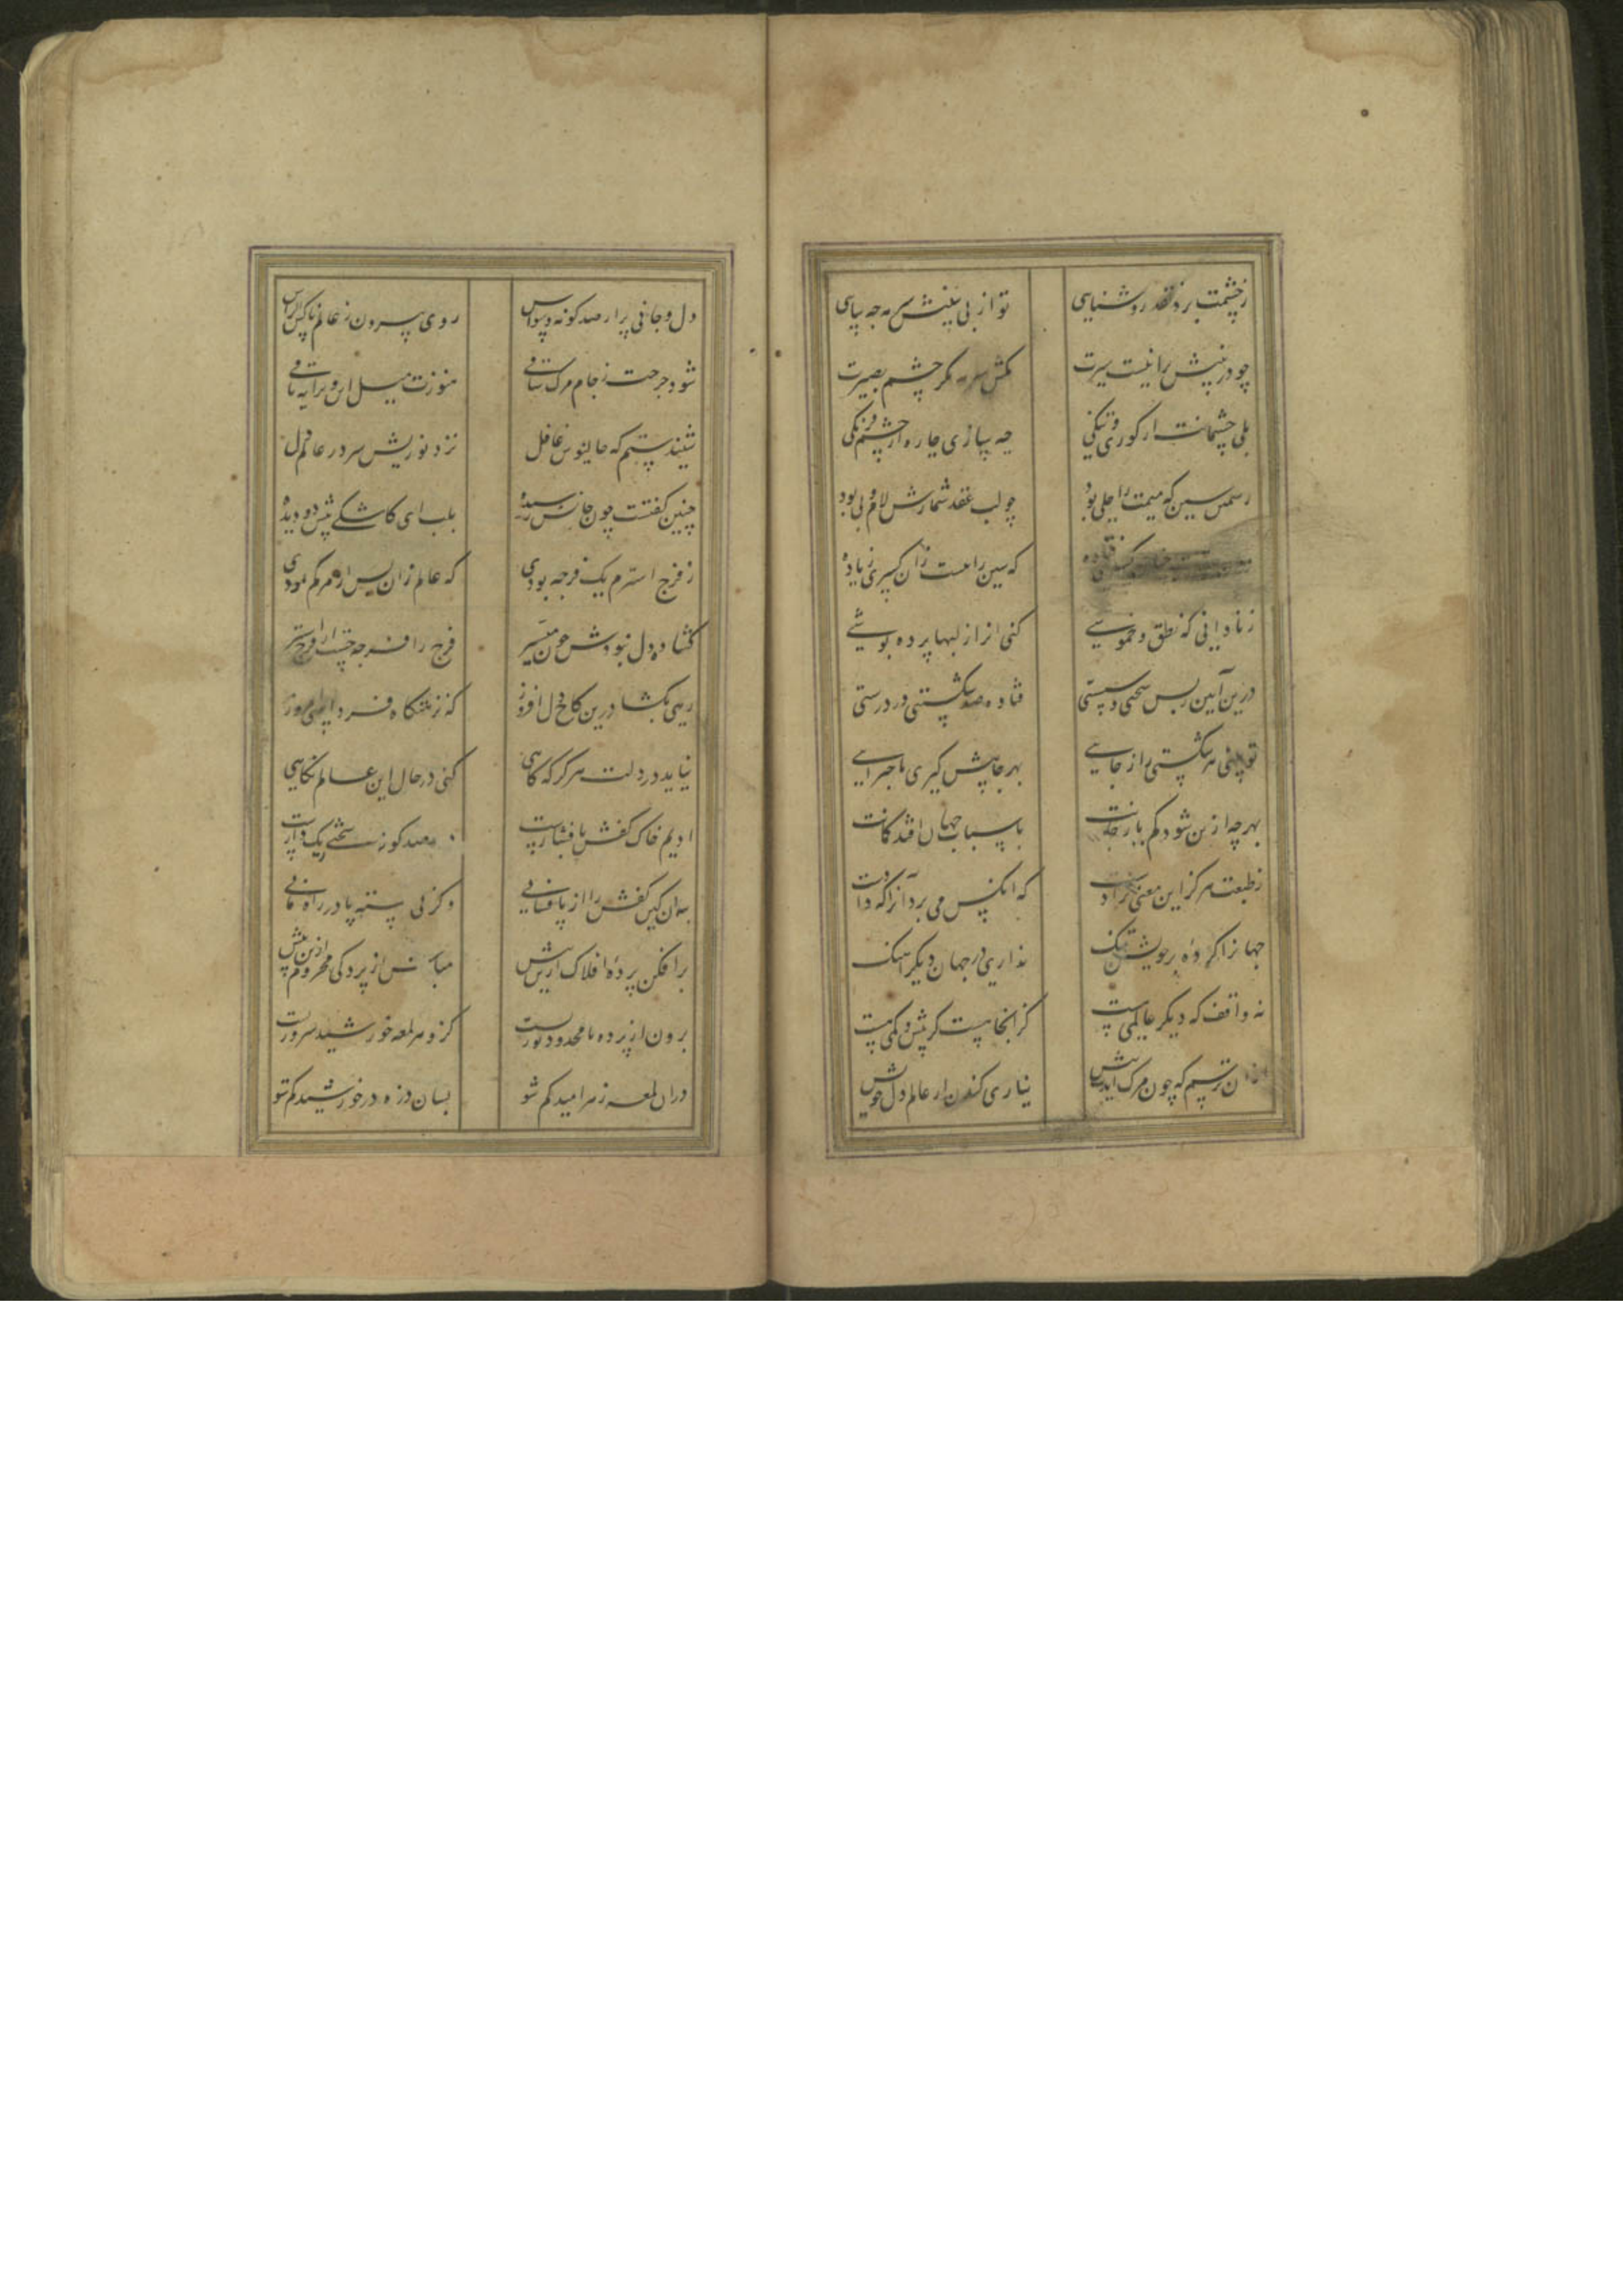 ز چشمت برد نقد روشنایی
تو از بی بینش سرمه چه سایی
چو در بینش ترا نیست سیرت
مکش سرمه مگر چشم بصیرت
بلی چشمانت از کوری و تنگی
چه سازی چاره از چشم فرنگی
چو لب عقد شمارش لام و بی بود
که سین را شست زان کسری زیاده
ز نادانی که نطق و خموشی
کنی از ژاژ لبها پرده پوشی
درین آیین بس سختی و سستی
فتاده صد شکستی در درستی
تو بینی هر شکستی را ز جایی
بهر جا پیش گیری ماجرایی
بهر چه از بن شود کم بار جانت
باسباب جهان افتد گمانت
ز طبعت هرگز این معنی نزادست
که آنکس می برد آنرا که دادست
جهانرا کرده بر خویشتن تنگ
نداری در جهان دیگر آهنگ
نه واقف که دیگر عالمی هست
کز آنجا هست گر بیش و کمی هست
ازان ترسم که چون مرگ آیدت پیش
نیاری کندن از عالم دل خویش
دل و جانی پر از صد گونه وسواس
روی بیرون ز عالم ناکس الراس
شود جرعت ز جام مرگ ساقی
هنوزت میل این ویرانه باقی
شنیدستم که جالینوس غافل
نزد نوزیش سر در عالم دل
چنین گفتست چون جانش رسیده
بلب ای کاشکی پیش دو دیده
ز فرج استرم یک فرجه بودی
که عالم زان پس از مرگم نمودی
گشاده دل نبودش چون میسر
فرج را فرجه جست از فرج استر
رهی بگشا درین کاخ دل افروز
که نزهتگاه فردا بینی امروز
نیاید در دلت هرگز که گاهی
کنی در حال این عالم نگاهی
ادیم خاک کفش پا فشارست
بصد گونه سختی ریگ دارست
بدان کین کفش را از پا فشانی
وگرنی بسته پا در راه مانی
برافکن پرده افلاک ازین بیش
مباش از پردگی محروم ازین بیش
برون از پرده نامحدود نوریست
کزو هر لمعه خورشید سروریست
دران لمعه ز هر امید گم شو
بسان ذره در خورشید گم شو